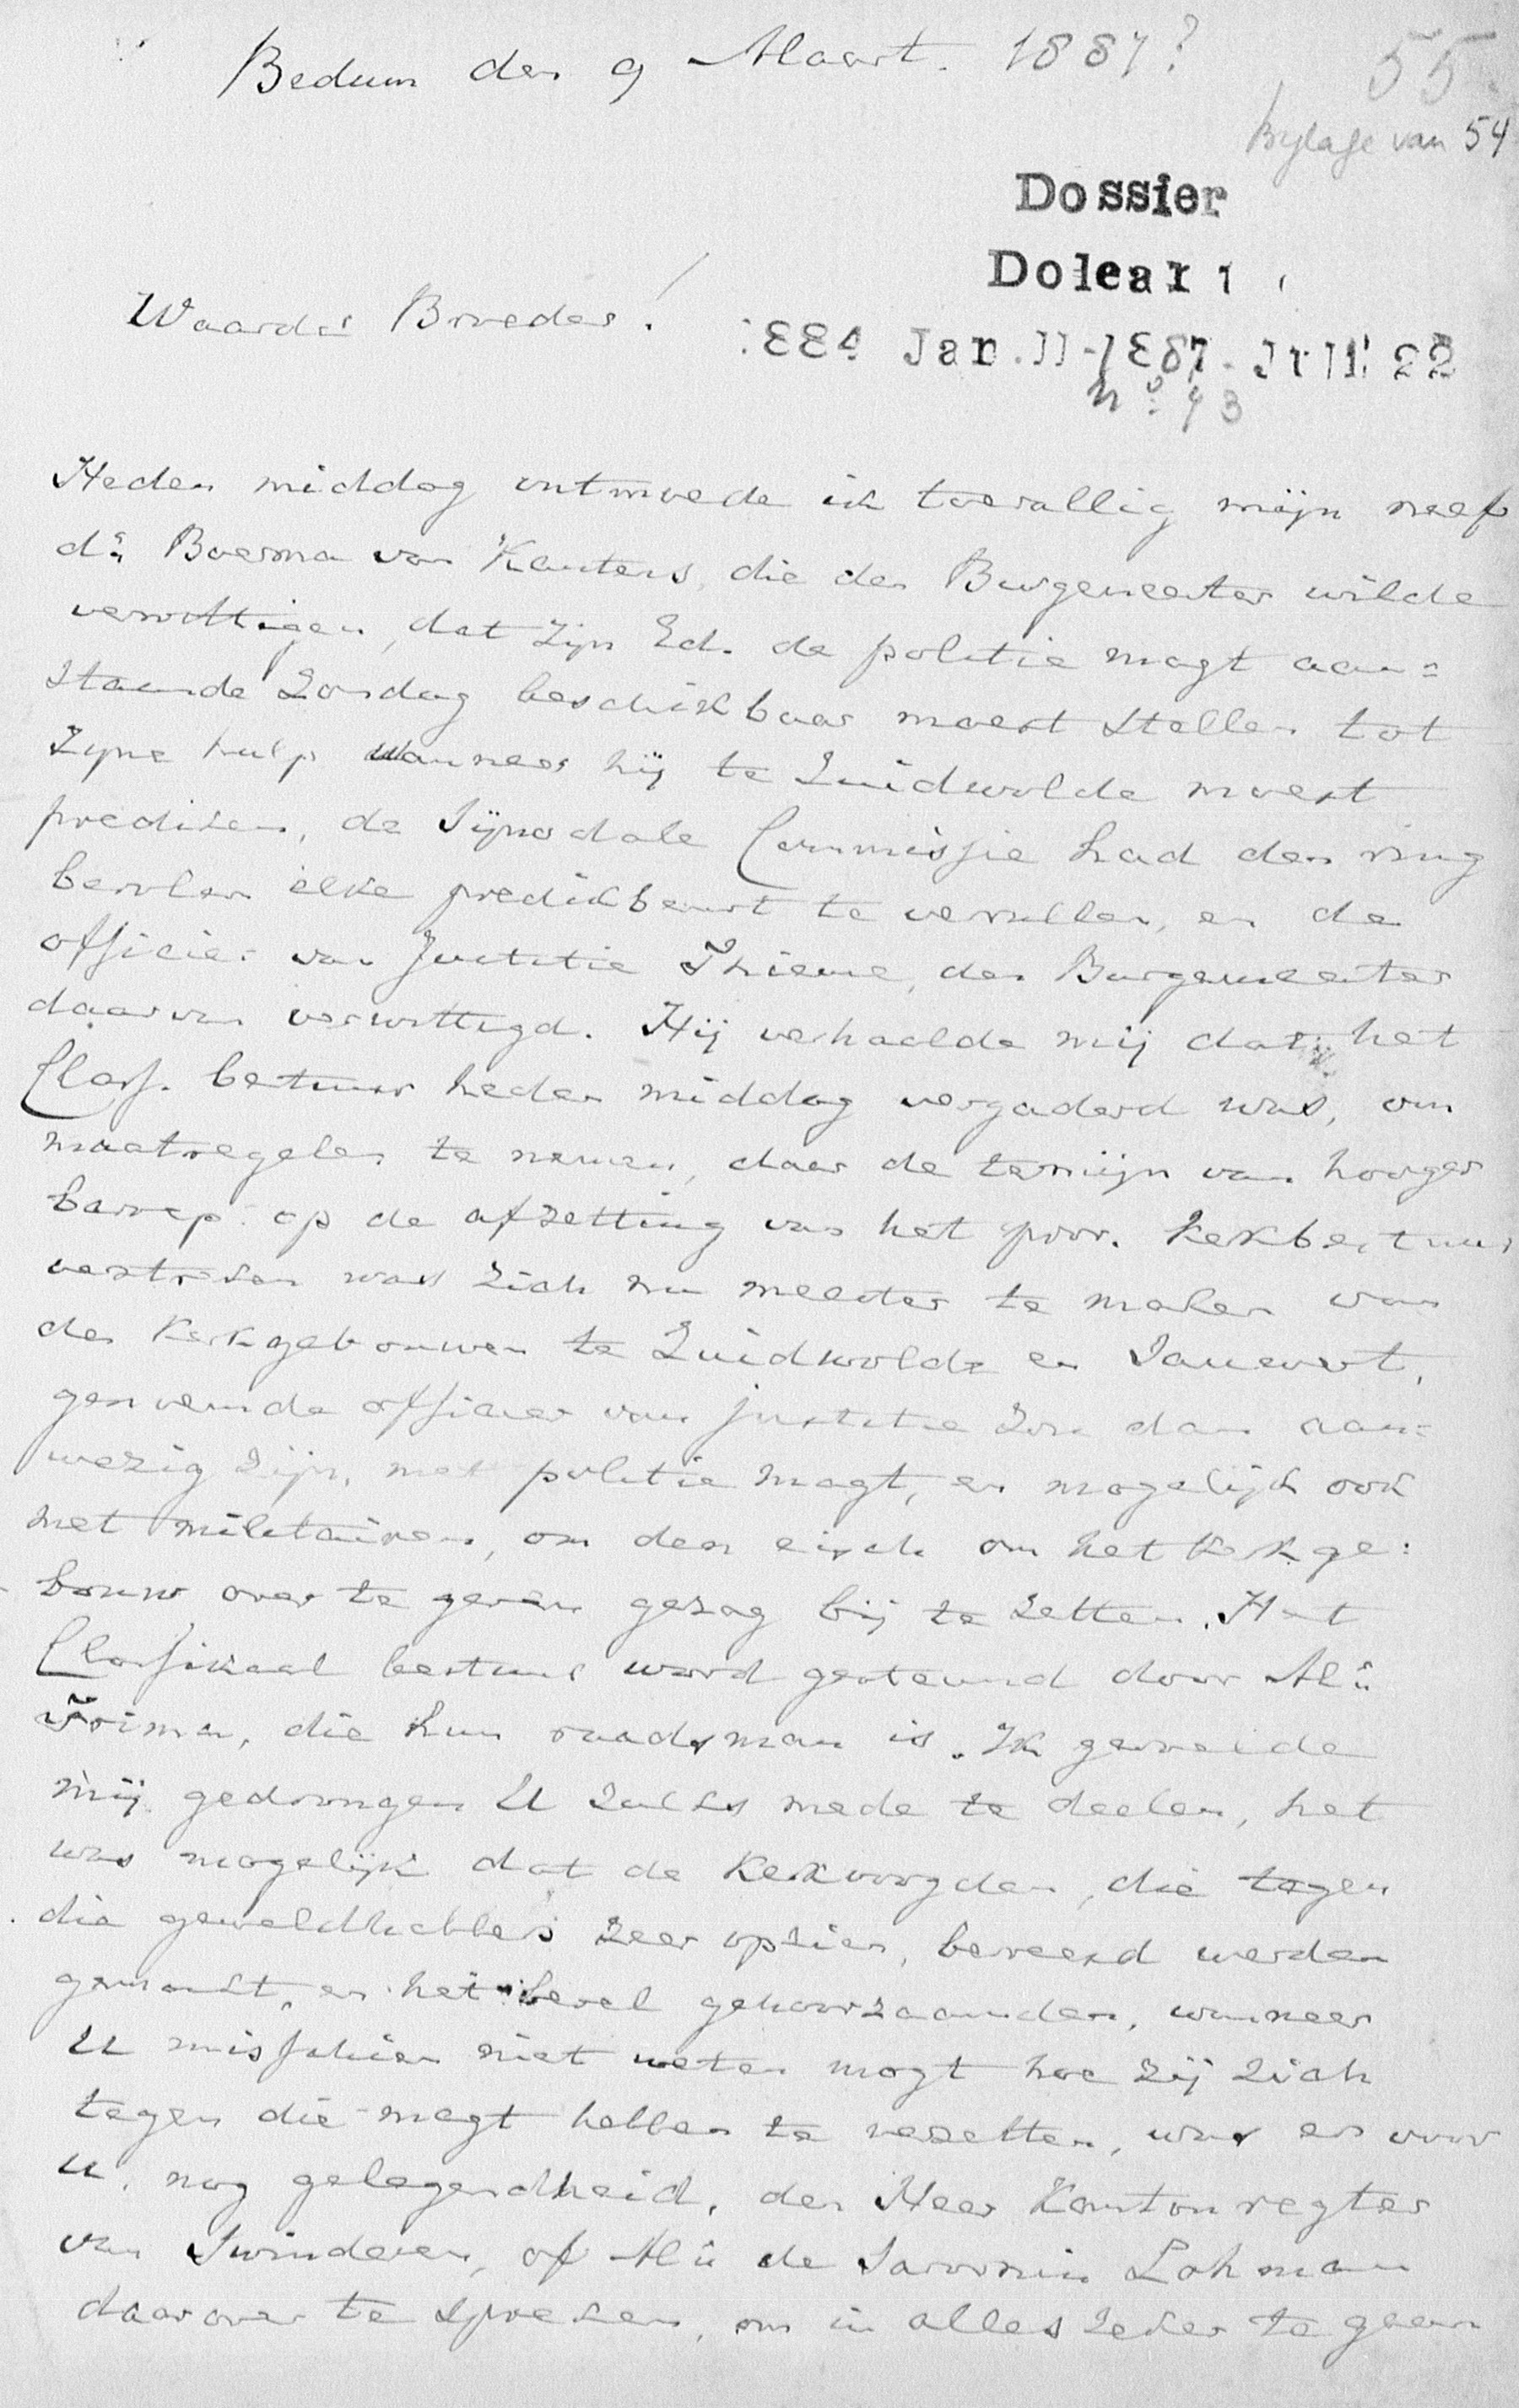 Bedum den 9 Maart. 1887?
55.
Bijlage van 54
Dossier
Doleari
Waarde Broeder!
1884 Jan. 11-1887. Juli 22
No: 43
Heden middag ontmoede ik toevallig mijn neef
ds Boerma van Kantens, die den Burgemeester wilde
verwittigen, dat Zijn Ed. de politie magt aan=
staande Zondag beschikbaar moest stellen tot
zijne hulp wanneer hij te Zuidwolde moest
prediken, de Sijnodale Commissie had den ring
bevolen elke predikbeurt te vervullen, en de
officier van Justitie Thieme, den Burgemeester
daarvan verwittigd. Hij verhaalde mij dat het
Class. bestuur heden middag vergaderd was, om
maatregelen te nemen, daar de termijn van hooger
beroep op de afzetting van het prov. kerkbestuur
verstreken was zich nu meester te maken van
den Kerkgebouwen te Zuidwolde en Sauwert,
genoemde officier van justitie zou dan aan=
wezig zijn, met politie magt, en mogelijk ook
met militairen, om den eisch om het kerkge:
bouw over te geven gezag bij te zetten. Het
Classikaal bestuur word gesteund door Mr
Trima, die hun raadsman is. Ik gevoelde
mij gedrongen U zulks mede te deelen, het
was mogelijk dat de kerkvoogden, die tegen
die geweldhebbers zeer opzien, bevreesd werden
gemaakt, en het bevel gehoorzaamden, wanneer
U misschien niet weten mogt hoe zij zich
tegen die magt hebben te verzetten, was er voor
U. nog gelegendheid, den Heer Kantonregter
van Swinderen, of Mr de Savornin Lohman
daarover te spreken, om in alles zeker te gaan